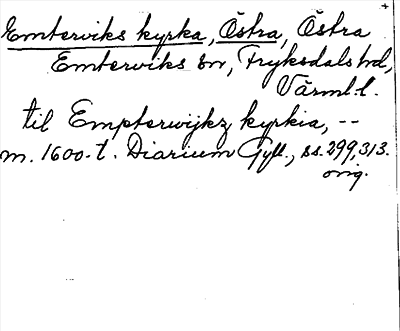 Emterviks kyrka, Östra, Östra
Emterviks sn, Fryksdals hd,
Värml. l.
til Empterwijkz kyrkia, --
m. 1600-t. Diarium Gyll., ss. 299, 313.
orig.